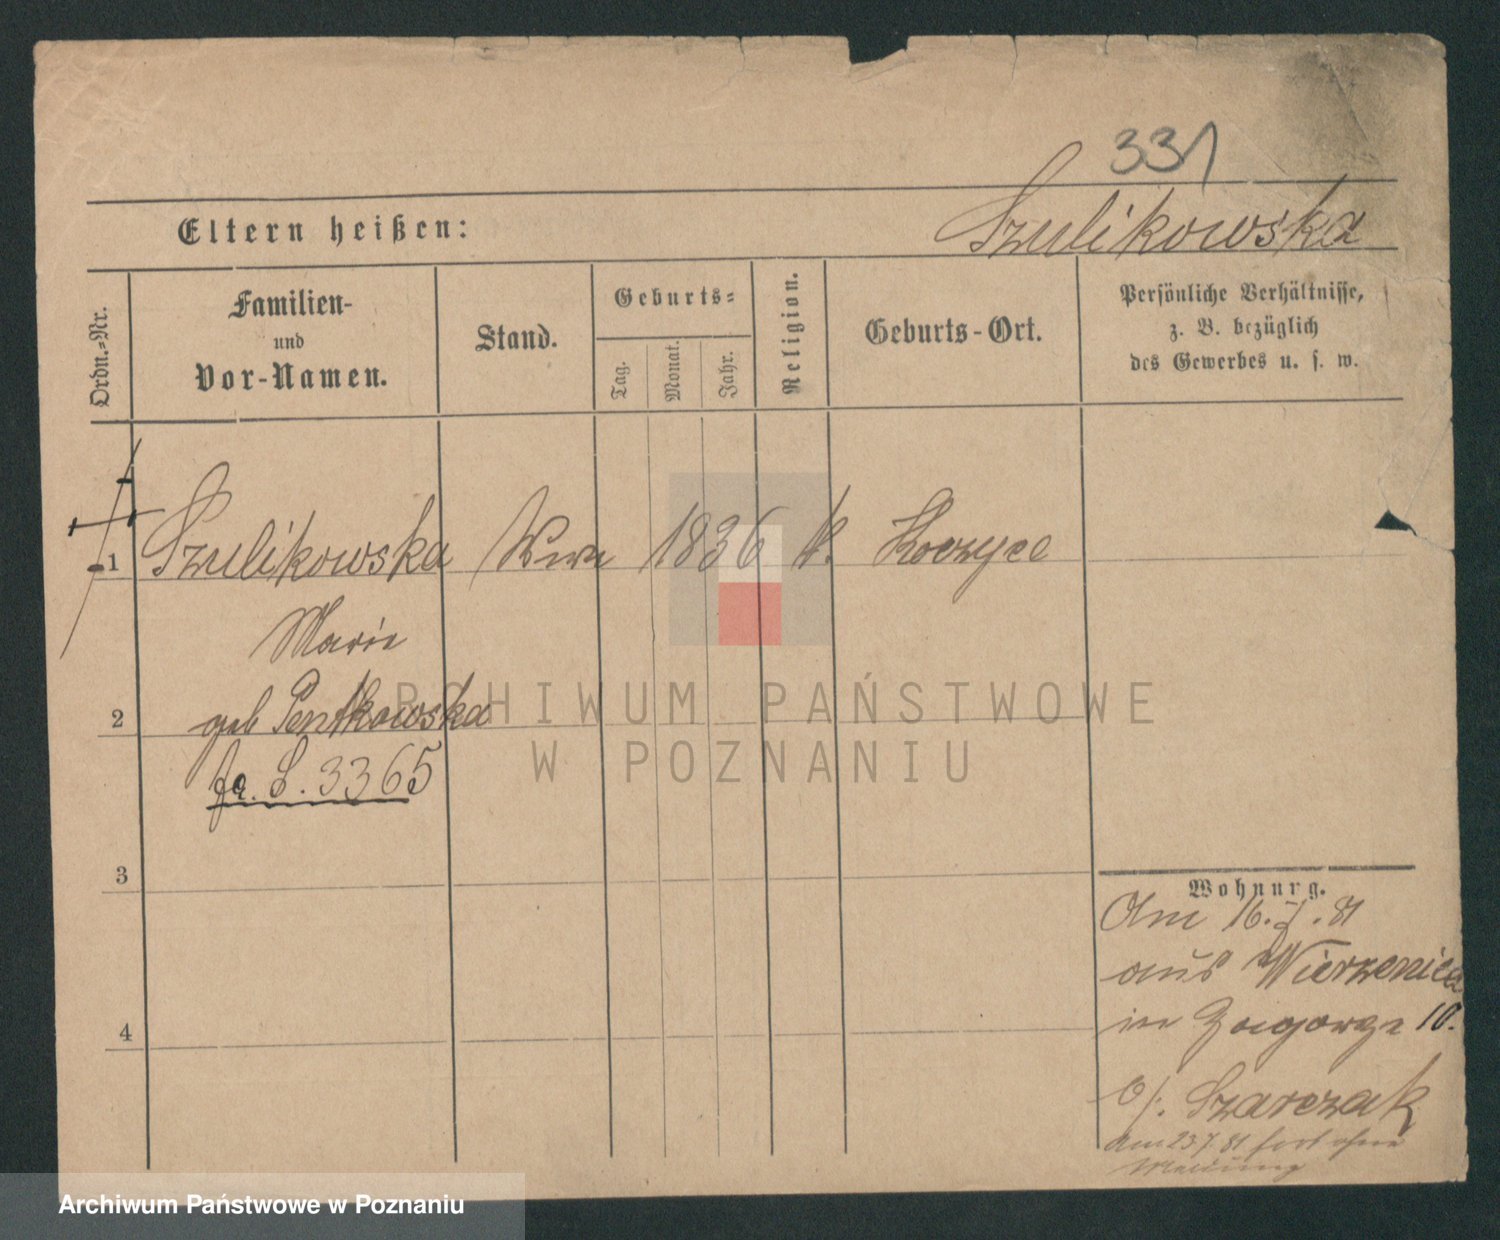 331
Eltern heißen:
Szulikowska
Ordn.-Nr.
Familien-
und
Vor-Namen.
Stand.
Geburts-
Tag.
Monat.
Jahr.
Religion.
Geburts-Ort.
Persönliche Verhältnisse,
z. B. bezüglich
des Gewerbes u. s. w.
1 Szulikowska Wwe 1836 k.
Marie
2 geb Pentkowska
S. 3365
3
4
Wohnung.
Am 16. 7. 81
aus Wierzenica
in Zagorze 10.
b/. Szarczak
am 23 7. 81 fort ohne
Meldung
ARCHIWUM PAŃSTWOWE
W POZNANIU
Archiwum Państwowe w Poznaniu